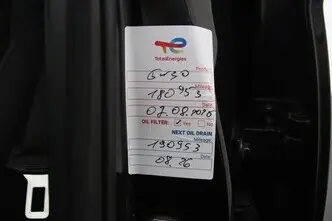 TotalEnergies
Product
5w30
Mileage
180953
Date
07.08.2025
OIL FILTER: ✓ Yes No
NEXT OIL DRAIN
Mileage
190953
Date
08.26